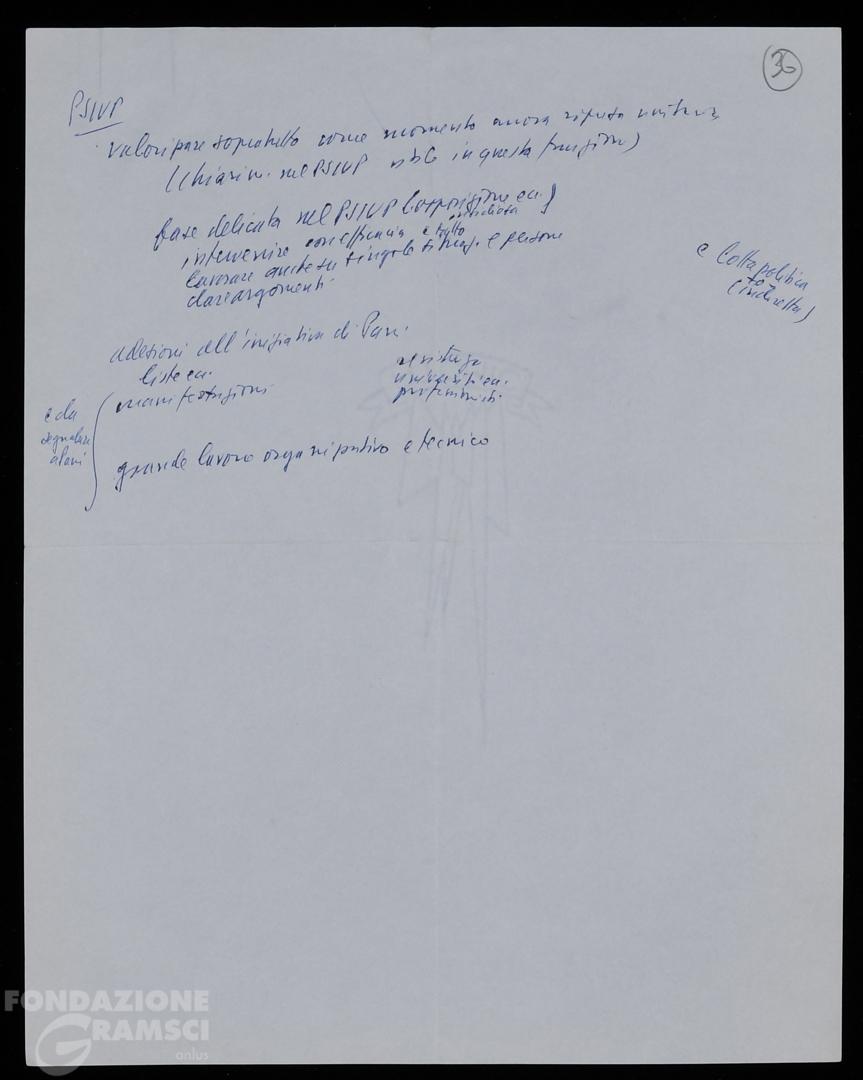 36
PSIUP
valorizzare sopratutto come momento ancora ripresa unitaria
(Chiarim. nel PSIUP in questa funzione)
fase delicata nel PSIUP (opposizione ecc.)
intervenire con efficacia e tatto
lavorare anche su singole e persone
dare argomenti
e lotta politica
(indiretta)
adesioni all'iniziativa di Parri
liste ecc.
manifestazioni
resistenza
università ecc.
e da
segnalare
grande lavoro organizzativo e tecnico
FONDAZIONE
GRAMSCI
onlus